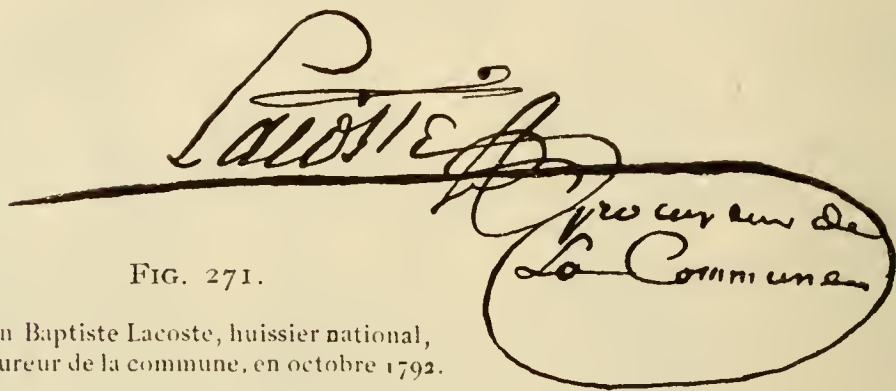 Lacoste
procureur de
La Commune
FIG. 271.
n Baptiste Lacoste, huissier national,
ureur de la commune, en octobre 1792.